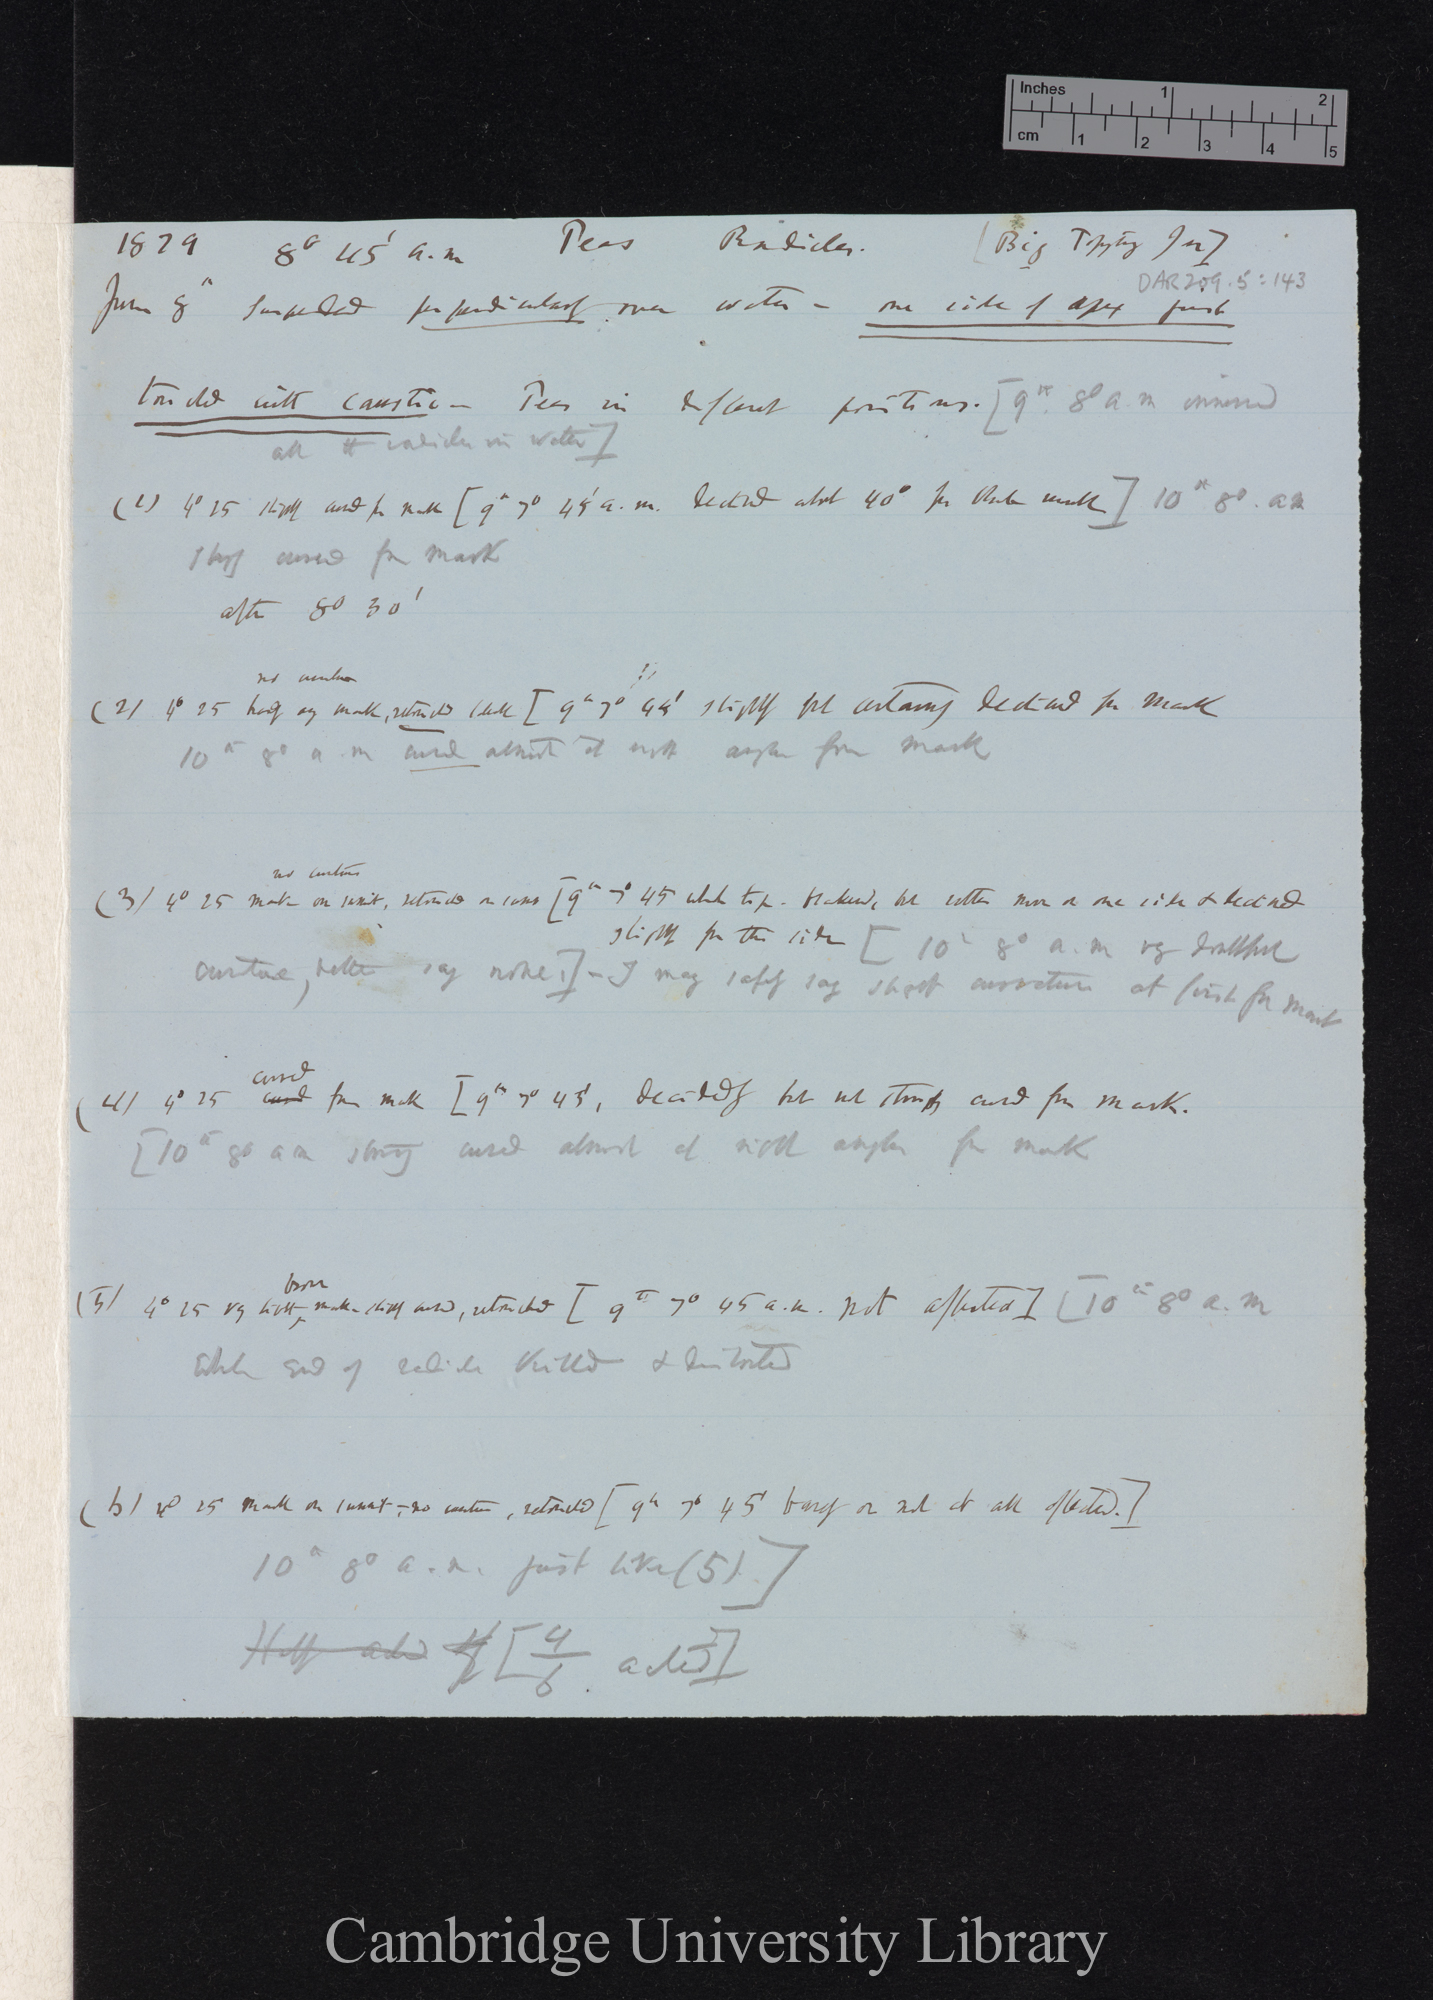 Inches 1 2
cm 1 2 3 4 5
1879 8° 45' a.m Peas Radicles. [Big Topping Jar]
DAR 209.5:143
June 8th suspended perpendicularly over water — one side of apex just
touched with caustic — Peas in different positions. [9th. 8° a.m immersed
all the radicles in water]
(1) 4° 25 slightly curved from mark [9th 7° 45' a.m. declined about 40° from black mark] 10th 8°. a m
curved from mark
after 8° 30'
no curvature
(2) 4° 25 hardly any mark, retouched [9th 7° 45' slightly yet certainly declined from mark
10th 8° a.m curved almost at right angles from mark
no curvature
(3) 4° 25 mark on summit, retouched [9th 7° 45 whole tip blackened, but rather more on one side & declined
slightly from this side [10th 8° a.m very doubtful
curvature, better say none.] — I may safely say slight curvature at first from mark
curved
(4) 4° 25 curved from mark [9th 7° 45', decidedly but not strongly curved from mark.
[10th 8° a m strongly curved almost at right angles from mark
brown
(5) 4° 25 very light mark slightly curved, retouched [9th 7° 45 a.m. not affected] [10th 8° a.m
whole end of radicle killed & distorted
(6) 4° 25 mark on summit — no curvature, retouched [9th 7° 45' barely or not at all affected.]
10th 8° a.m. just like (5).]
Half acted [4/6 acted]
Cambridge University Library